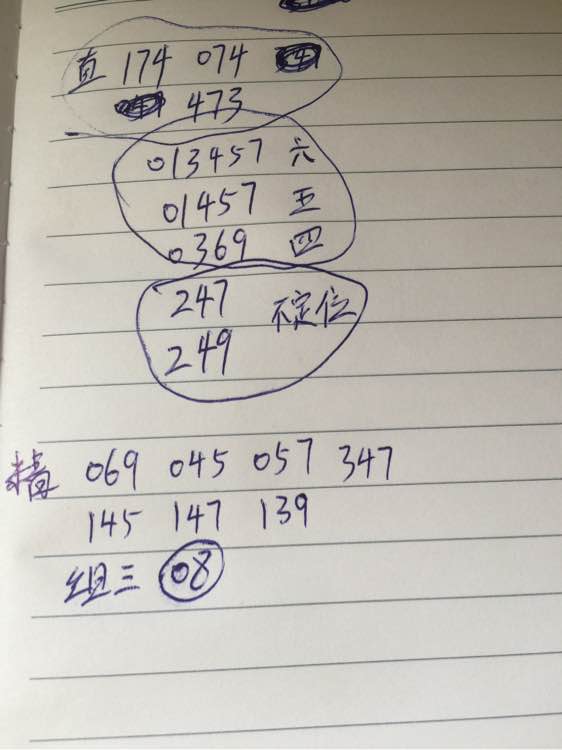 直 174 074
473
013457 六
01457 五
0369 四
247 不定位
249
精 069 045 057 347
145 147 139
组三 08